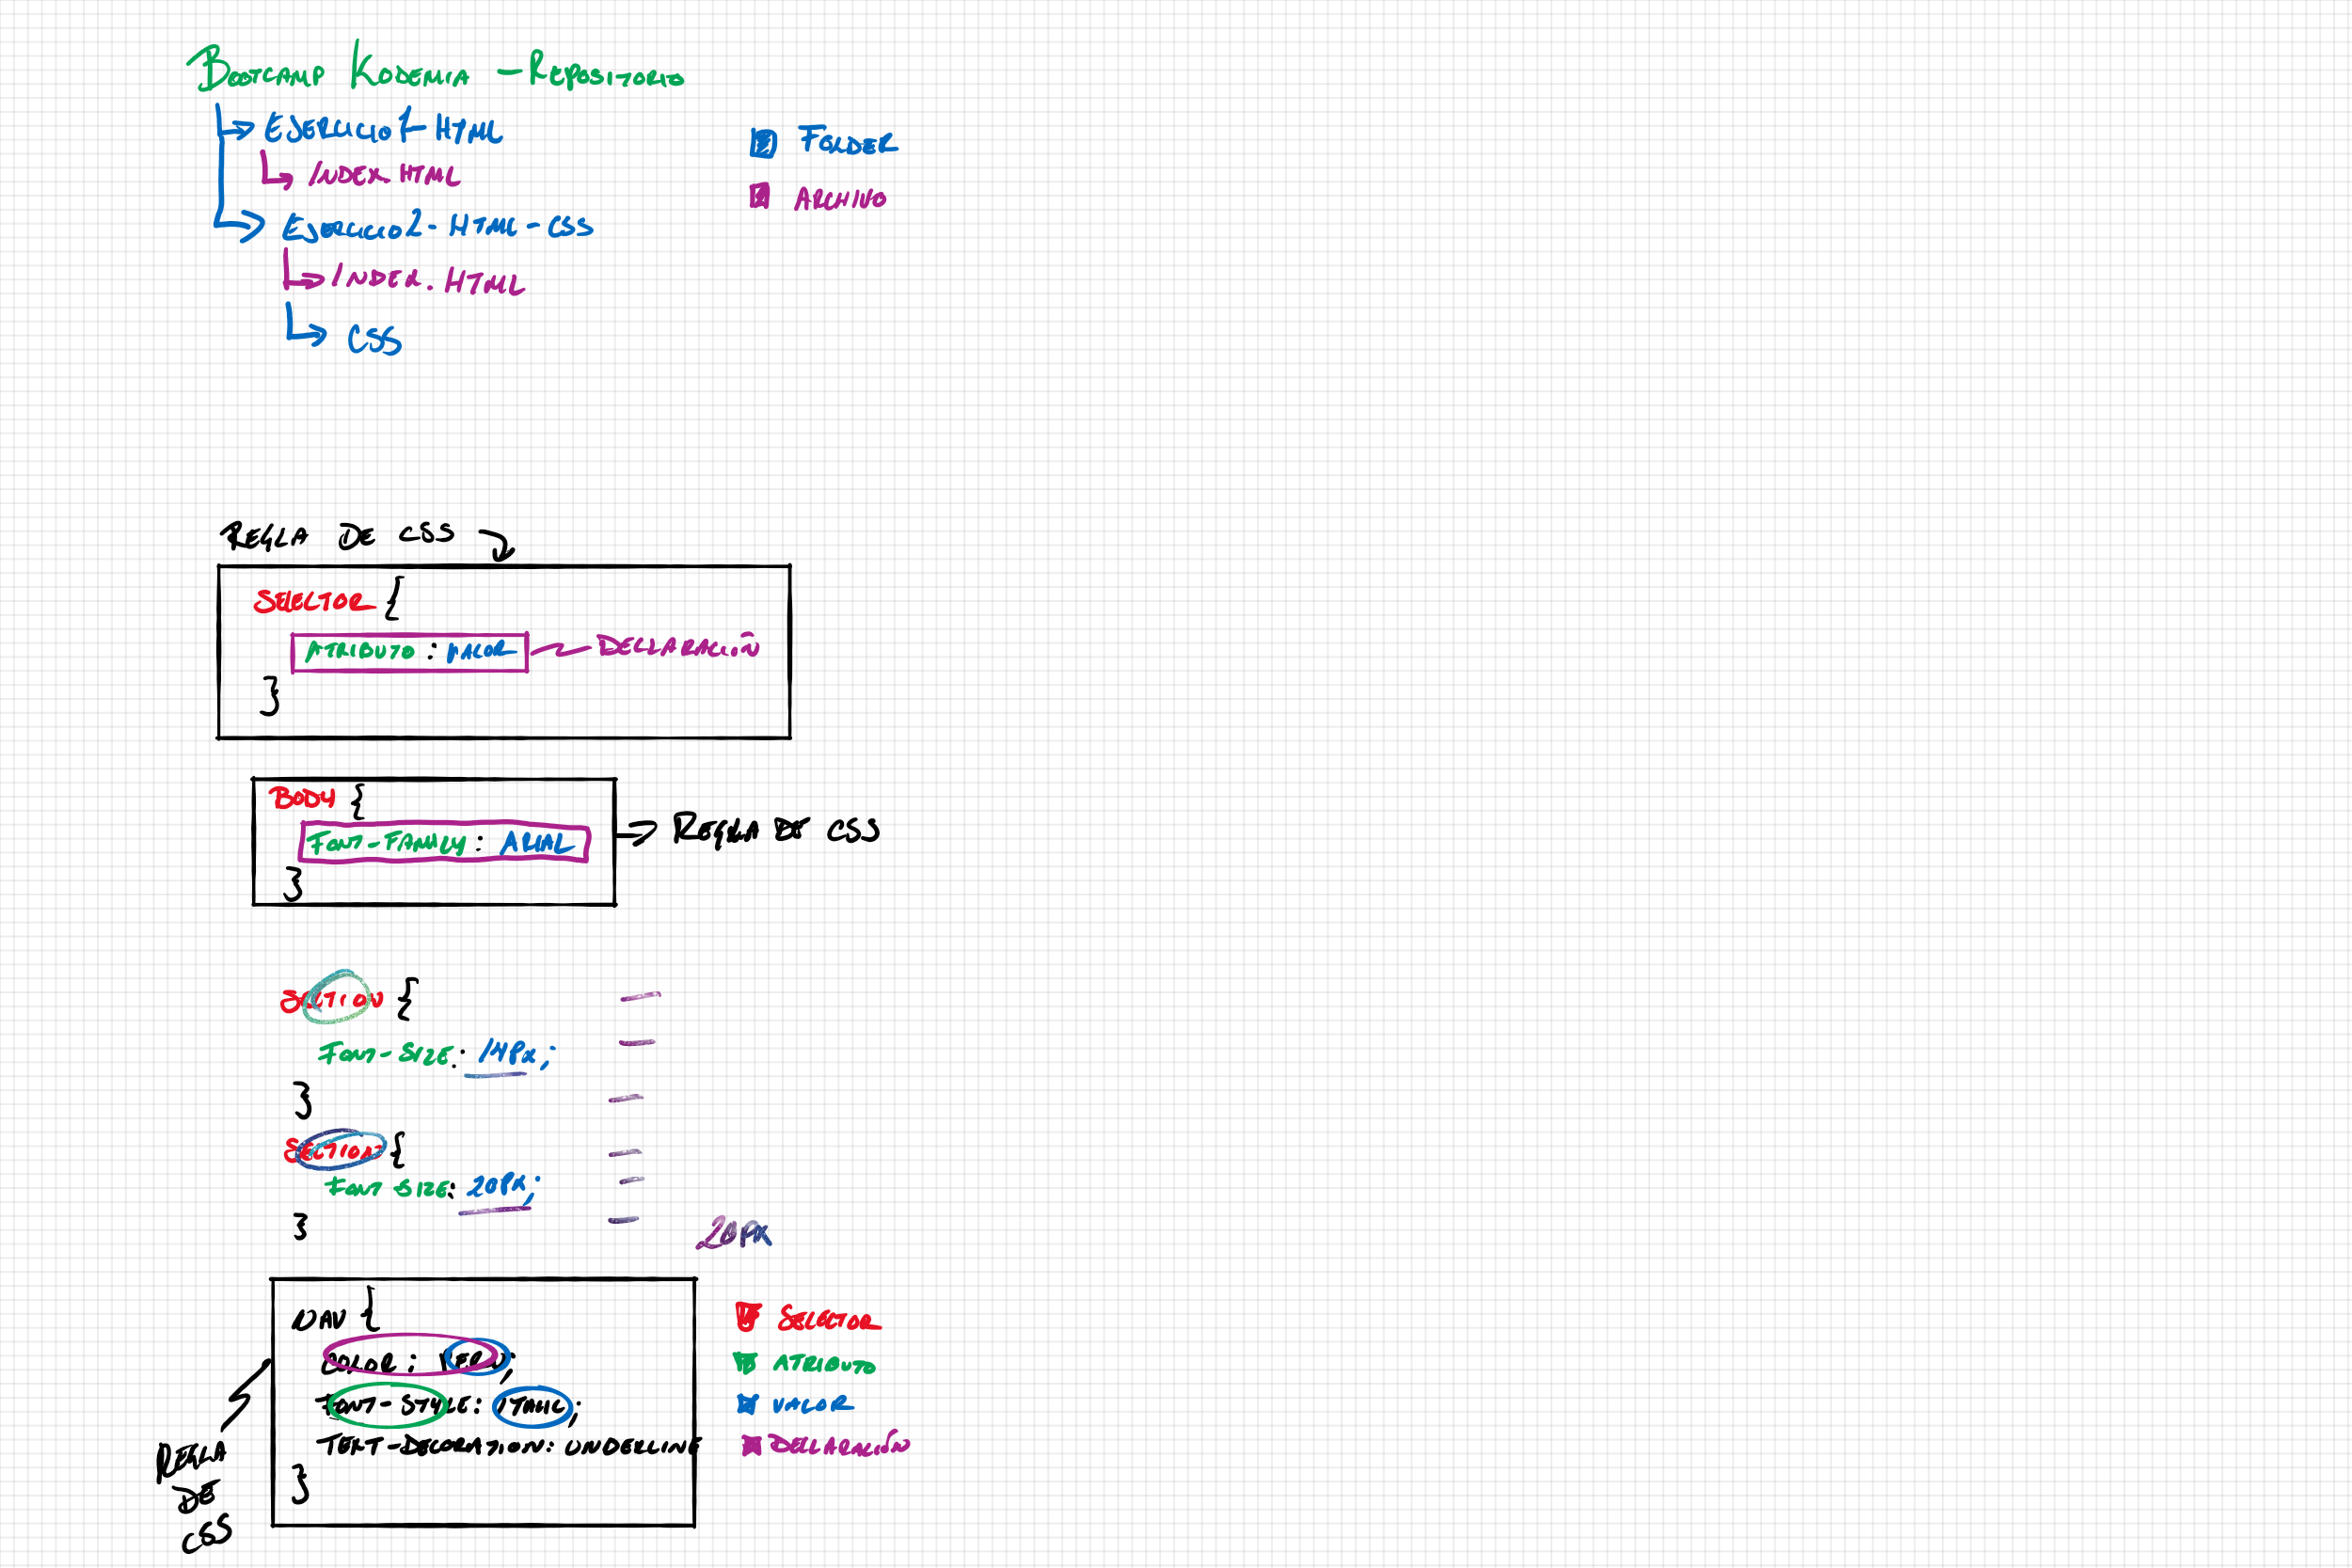 BOOTCAMP KODEMIA - REPOSITORIO
EJERCICIO1-HTML
INDEX.HTML
EJERCICIO2-HTML-CSS
INDEX.HTML
CSS
FOLDER
ARCHIVO
REGLA DE CSS
SELECTOR {
ATRIBUTO : VALOR
DECLARACIÓN
}
BODY {
FONT-FAMILY : ARIAL
}
REGLA DE CSS
SECTION {
FONT-SIZE: 14PX;
}
SECTION {
FONT SIZE: 20PX;
}
20PX
NAV {
COLOR:
FONT-STYLE: ITALIC;
TEXT-DECORATION: UNDERLINE
}
REGLA
DE
CSS
SELECTOR
ATRIBUTO
VALOR
DECLARACIÓN